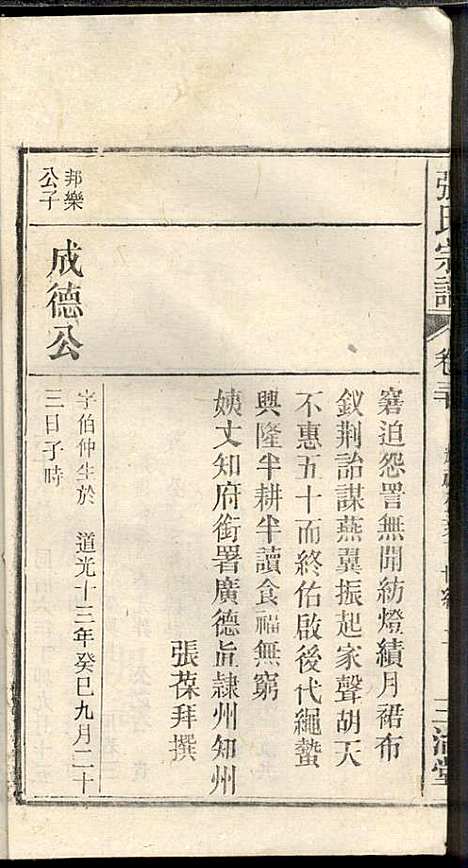 張氏宗譜 卷三
窘迫怨詈無聞紡燈績月裙布
釵荆詒謀燕翼振起家聲胡天
不惠五十而終佑啟後代繩蟄
興隆半耕半讀食福無窮
姨丈知府銜署廣德直隸州知州
張葆拜撰
邦樂
公子
成德公
字伯仲生於 道光十三年癸巳九月二十
三日子時